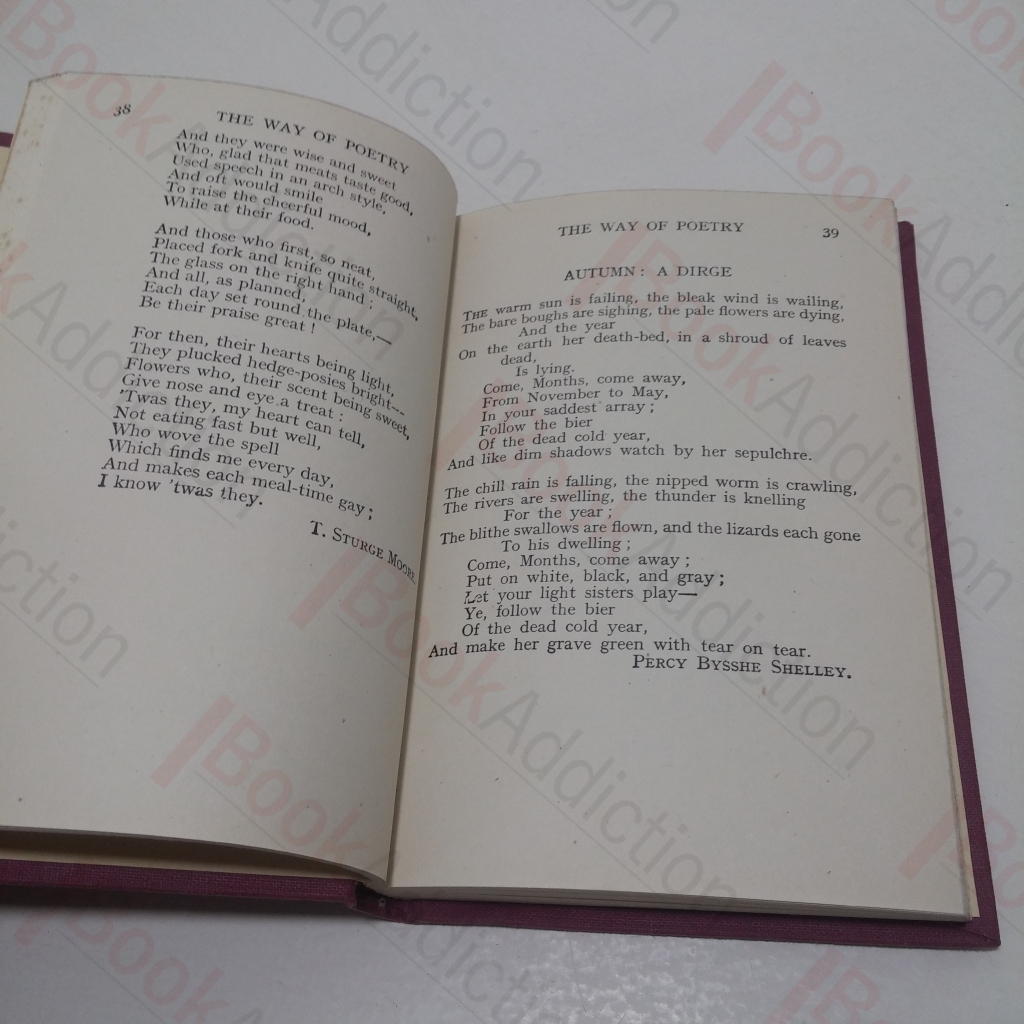 38
THE WAY OF POETRY
And they were wise and sweet
Who, glad that meats taste good,
Used speech in an arch style,
And oft would smile
To raise the cheerful mood,
While at their food.
And those who first, so neat,
Placed fork and knife quite straight,
The glass on the right hand;
And all, as planned,
Each day set round the plate,—
Be their praise great!
For then, their hearts being light,
They plucked hedge-posies bright—
Flowers who, their scent being sweet,
Give nose and eye a treat:
'Twas they, my heart can tell,
Not eating fast but well,
Who wove the spell
Which finds me every day,
And makes each meal-time gay;
I know 'twas they.
T. STURGE MOORE.
THE WAY OF POETRY
39
AUTUMN: A DIRGE
THE warm sun is failing, the bleak wind is wailing,
The bare boughs are sighing, the pale flowers are dying,
And the year
On the earth her death-bed, in a shroud of leaves
dead,
Is lying.
Come, Months, come away,
From November to May,
In your saddest array;
Follow the bier
Of the dead cold year,
And like dim shadows watch by her sepulchre.
The chill rain is falling, the nipped worm is crawling,
The rivers are swelling, the thunder is knelling
For the year;
The blithe swallows are flown, and the lizards each gone
To his dwelling;
Come, Months, come away;
Put on white, black, and gray;
Let your light sisters play—
Ye, follow the bier
Of the dead cold year,
And make her grave green with tear on tear.
PERCY BYSSHE SHELLEY.
BookAddiction